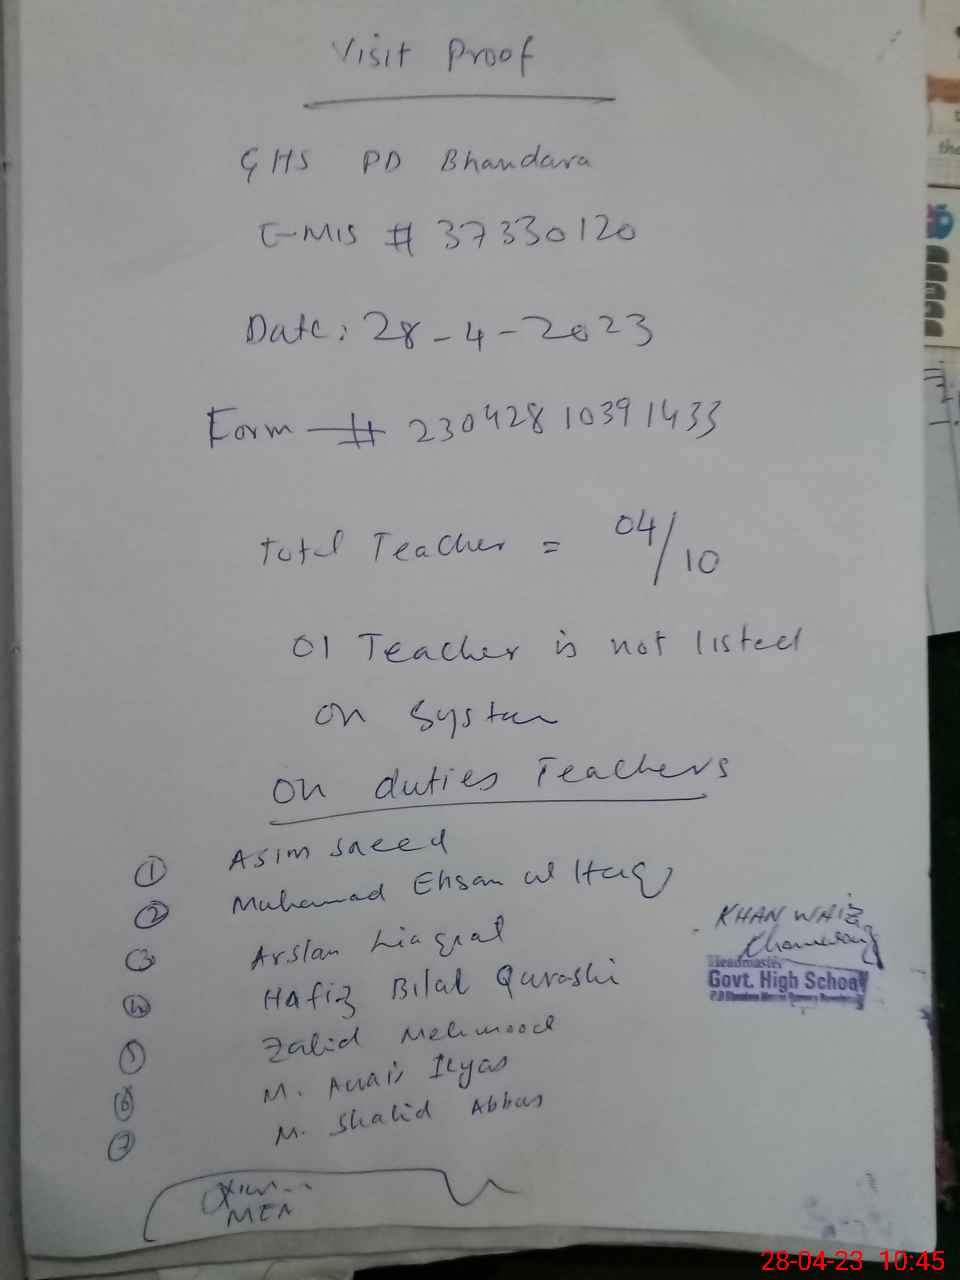 Visit Proof
GHS PD Bhandara
E-MIS # 37330120
Date: 28-4-2023
Form # 23042810391433
Total Teacher = 04/10
01 Teacher is not listed
on System
On duties Teachers
① Asim Saeed
② Muhammad Ehsan ul Haq
③ Arslan Liaqat
④ Hafiz Bilal Qurashi
⑤ Zahid Mehmood
⑥ M. Awais Ilyas
⑦ M. Shahid Abbas
KHAN WAIZ
Headmaster
Govt. High School
MEA
28-04-23 10:45